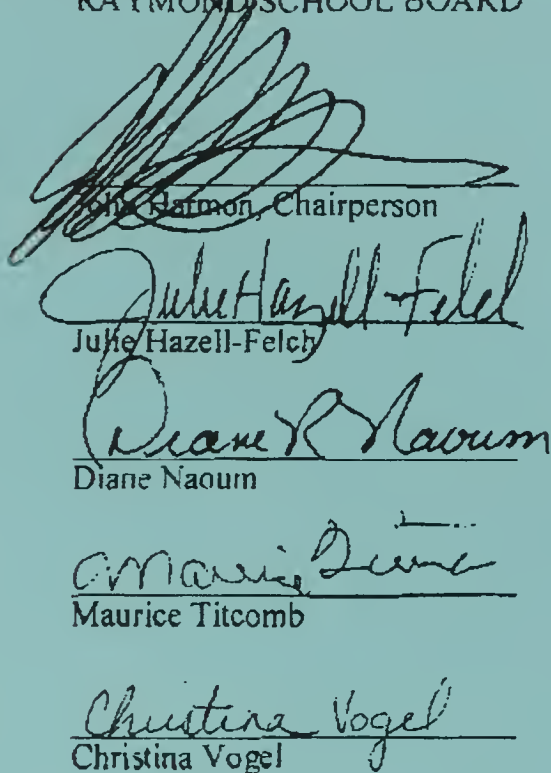 RAYMOND SCHOOL BOARD
John Harmon, Chairperson
Julie Hazell-Felch
Julie Hazell-Felch
Diane R Naoum
Diane Naoum
Maurice Titcomb
Christina Vogel
Christina Vogel